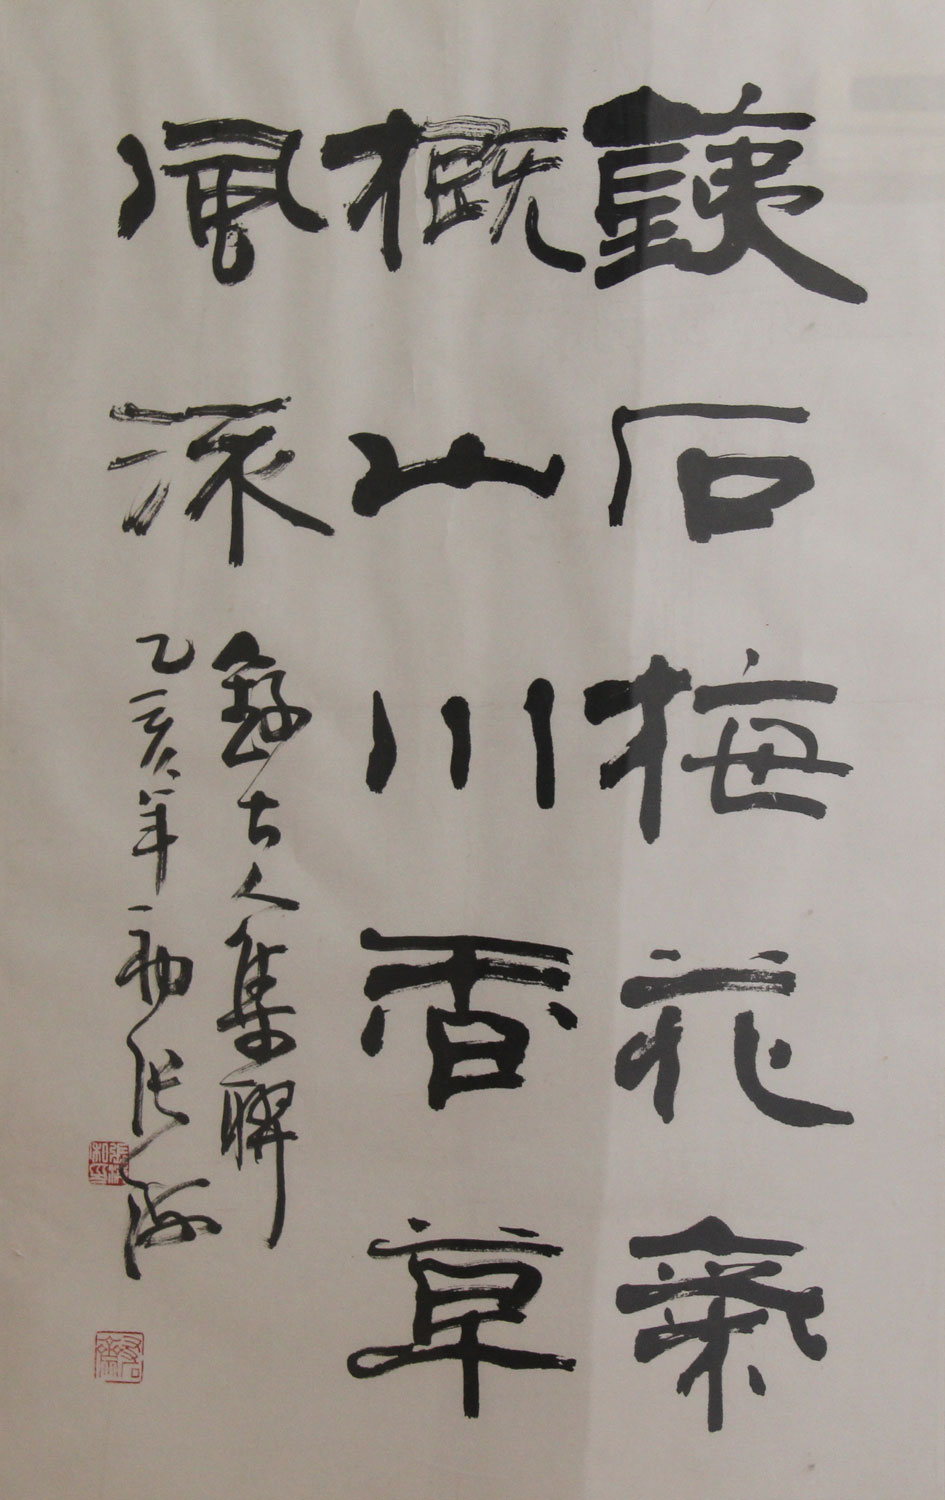 銕石梅花氣
概山川香草
風流
錄古人集聯
乙亥年初張海